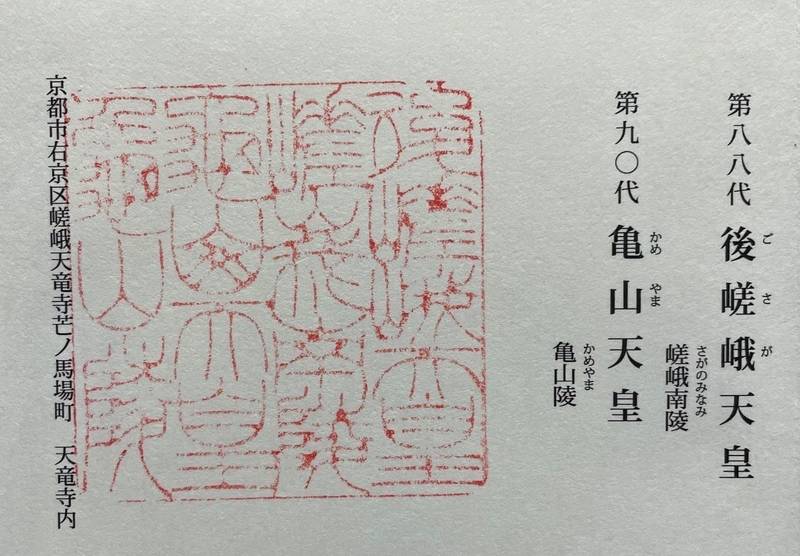 第八八代　後嵯峨天皇
ごさが
嵯峨南陵
さがのみなみ
第九〇代　亀山天皇
かめやま
亀山陵
かめやま
京都市右京区嵯峨天竜寺芒ノ馬場町　天竜寺内